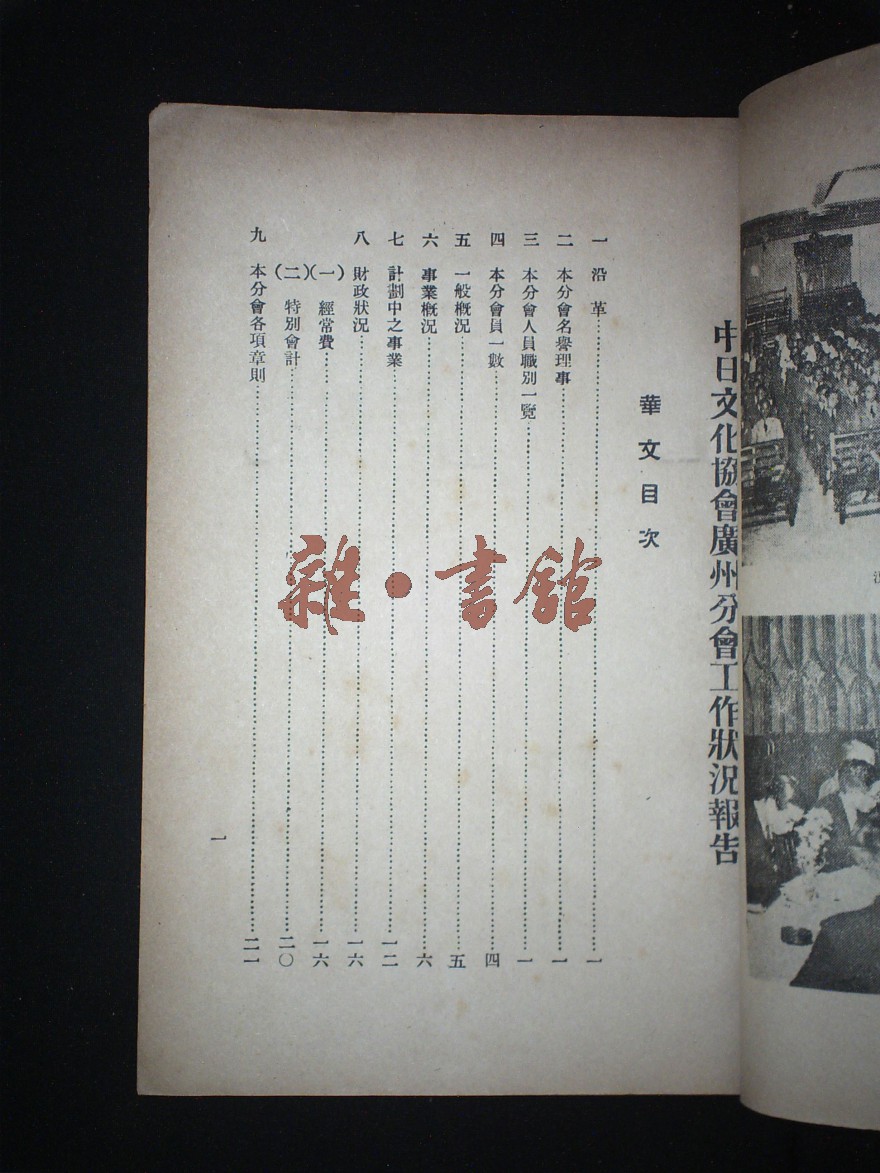 中日文化協會廣州分會工作狀況報告
華文目次
一 沿革……一
二 本分會名譽理事……一
三 本分會人員職別一覽……一
四 本分會員一數……四
五 一般概況……五
六 事業概況……六
七 計劃中之事業……一二
八 財政狀況……一六
(一) 經常費……一六
(二) 特別會計……二〇
九 本分會各項章則……二一
一
雜·書館